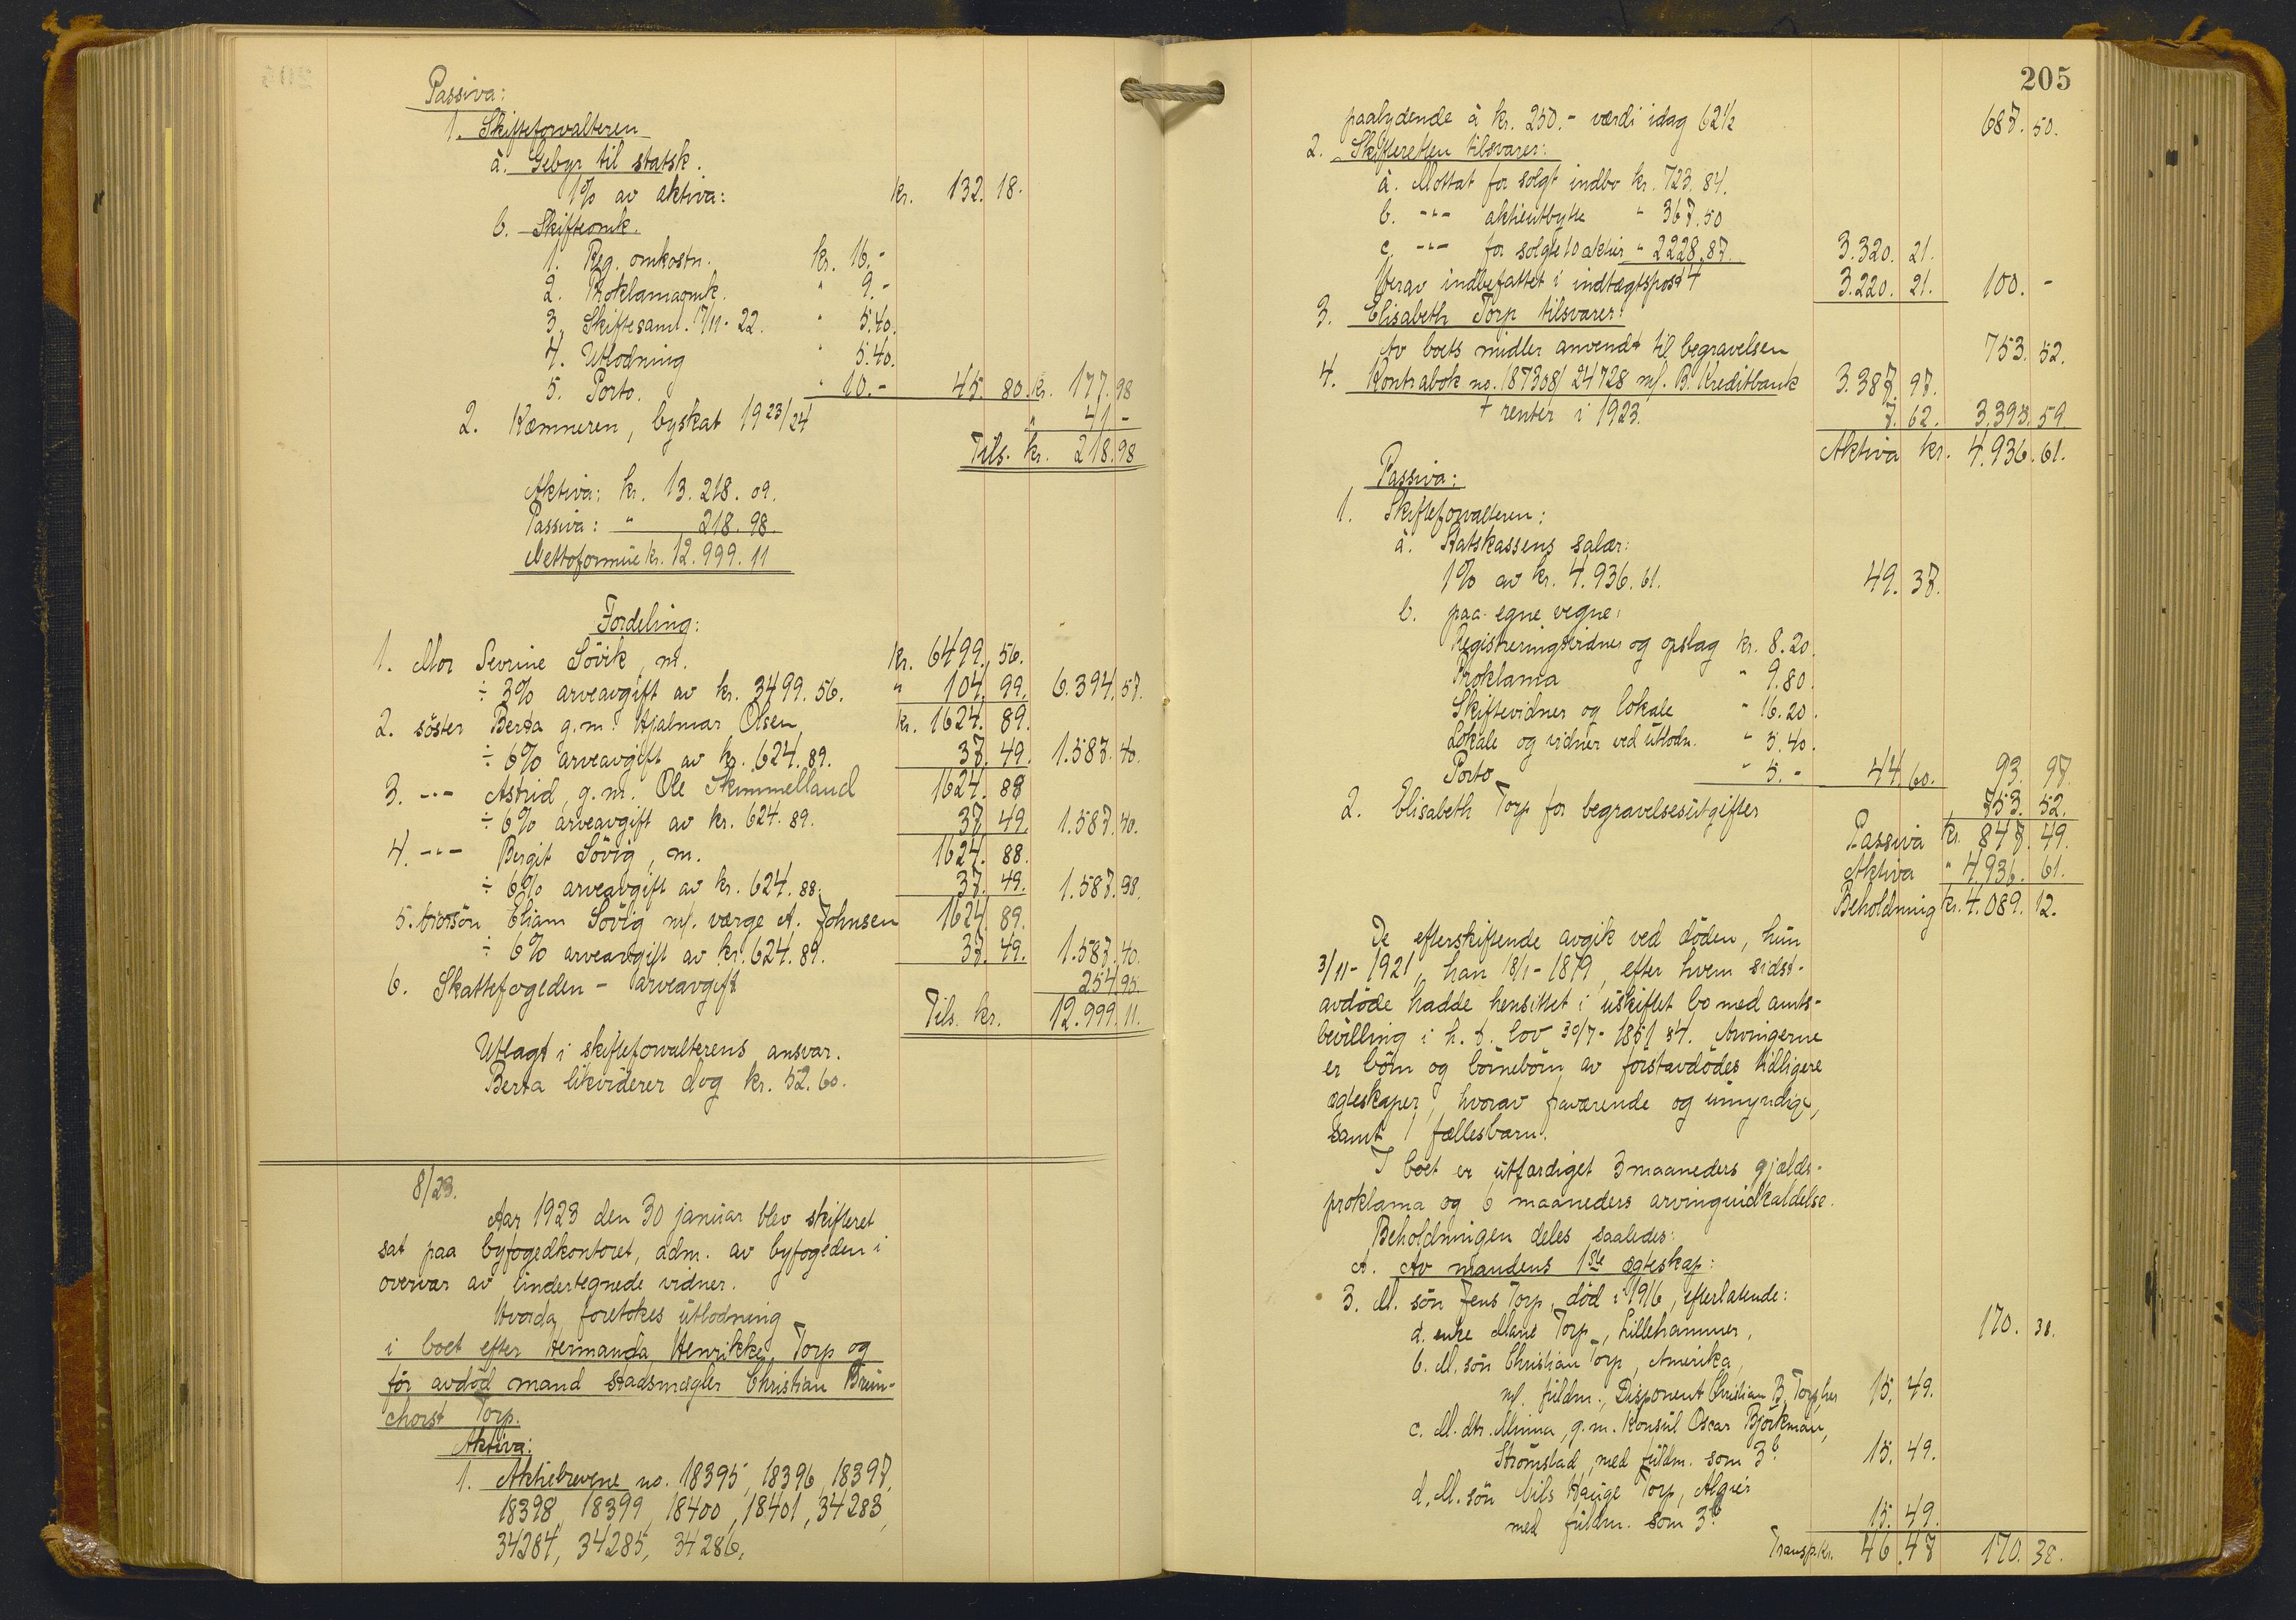 Passiva:
1. Skifteforvalteren
a. Gebyr til statsk.
1% av aktiva: kr. 132. 18.
b. Skifteomk.
1. Reg. omkostn. kr. 16.-
2. Proklamaomk. " 9.-
3. Skiftesaml. 7/11-22. " 5.40.
4. Utlodning " 5.40.
5. Porto. " 10.- 45. 80. kr. 177. 98
2. Kæmneren, byskat 1923/24 " 41 -
Tils. kr. 218.98
Aktiva: kr. 13.218.09.
Passiva: " 218.98.
Nettoformue kr. 12.999.11
Fordeling:
1. Mor Sevrine Sövik, m. kr. 6499. 56.
÷ 3% arveavgift av kr. 3499.56. " 104. 99. 6.394. 57.
2. söster Berta g.m. Hjalmar Olsen kr. 1624. 89.
÷ 6% arveavgift av kr. 624.89. 37. 49. 1.587. 40.
3. -"- Astrid, g.m. Ole Skimmelland 1624. 88
÷ 6% arveavgift av kr. 624.89. 37. 49. 1.587. 40.
4. -"- Bergit Sövig, m. 1624. 88.
÷ 6% arveavgift av kr. 624.88. 37. 49. 1.587. 98.
5. brorsön Eliam Sövig m/. værge A. Johnsen 1624. 89.
÷ 6% arveavgift av kr. 624.89. 37. 49. 1.587. 40.
6. Skattefogeden - arveavgift 254. 95.
Tils. kr. 12.999. 11.
Utlagt i skifteforvalterens ansvar.
Berta likviderer dog kr. 52.60.
8/23.
Aar 1923 den 30 januar blev skifteret
sat paa byfogedkontoret, adm. av byfogeden i
overvær av undertegnede vidner.
Hvorda foretokes utlodning
i boet efter Hermanda Henrikke Torp og
för avdöd mand stadsmægler Christian Brun-
chorst Torp.
Aktiva:
1. Aktiebrevene no. 18395, 18396, 18397,
18398, 18399, 18400, 18401, 34283,
34284, 34285, 34286,
205
paalydende à kr. 250.- værdi idag 62½ 687. 50.
2. Skifteretten tilsvarer:
a. Mottat for solgt indbo kr. 723.84.
b. -"- aktieutbytte " 367.50
c. -"- for solgte 10 aktier " 2228.87. 3.320. 21.
Herav indbefattet i indtægtspost 4 3.220. 21. 100. -
3. Elisabeth Torp tilsvarer:
Av boets midler anvendt til begravelsen 753. 52.
4. Kontrabok no. 187308/24728 m/. B. Kreditbank 3.387. 97.
+ renter i 1923. 7. 62. 3.395. 59.
Aktiva kr. 4.936. 61.
Passiva:
1. Skifteforvalteren:
a. Statskassens salær:
1% av kr. 4.936.61. 49. 37.
b. paa egne vegne:
Registreringsvidner og opslag kr. 8.20.
Proklama " 9.80.
Skiftevidner og lokale " 16.20.
Lokale og vidner ved utlodn. " 5.40.
Porto " 5.- 44. 60. 93. 97.
2. Elisabeth Torp for begravelsesutgifter 753. 52.
Passiva kr. 847. 49.
Aktiva " 4.936. 61.
Beholdning kr. 4.089. 12.
De efterskiftende avgik ved döden, hun
3/11-1921, han 18/1-1879, efter hvem sidst-
avdöde hadde hensittet i uskiftet bo med amts-
bevilling i h. t. lov 30/7-1851 §4. Arvingerne
er börn og börnebörn av förstavdödes tidligere
ægteskaper, hvorav fraværende og umyndige,
samt 1 fællesbarn.
I boet er utfærdiget 3 maaneders gjælds-
proklama og 6 maaneders arvingindkaldelse.
Beholdningen deles saaledes:
A. Av mandens 1ste ægteskap:
3. M. sön Jens Torp, död i 1916, efterlatende:
a. enke Marie Torp, Lillehammer, 170. 38.
b. M. sön Christian Torp, Amerika,
m/. fuldm., Disponent Christian B. Torp, her 15. 49.
c. M. dtr. Minna, g.m. Konsul Oscar Björkman,
Strömstad, med fuldm. som 3b 15. 49.
d. M. sön Nils Hauge Torp, Algier
med fuldm. som 3b 15. 49.
Transp. kr. 46. 47 170. 38.